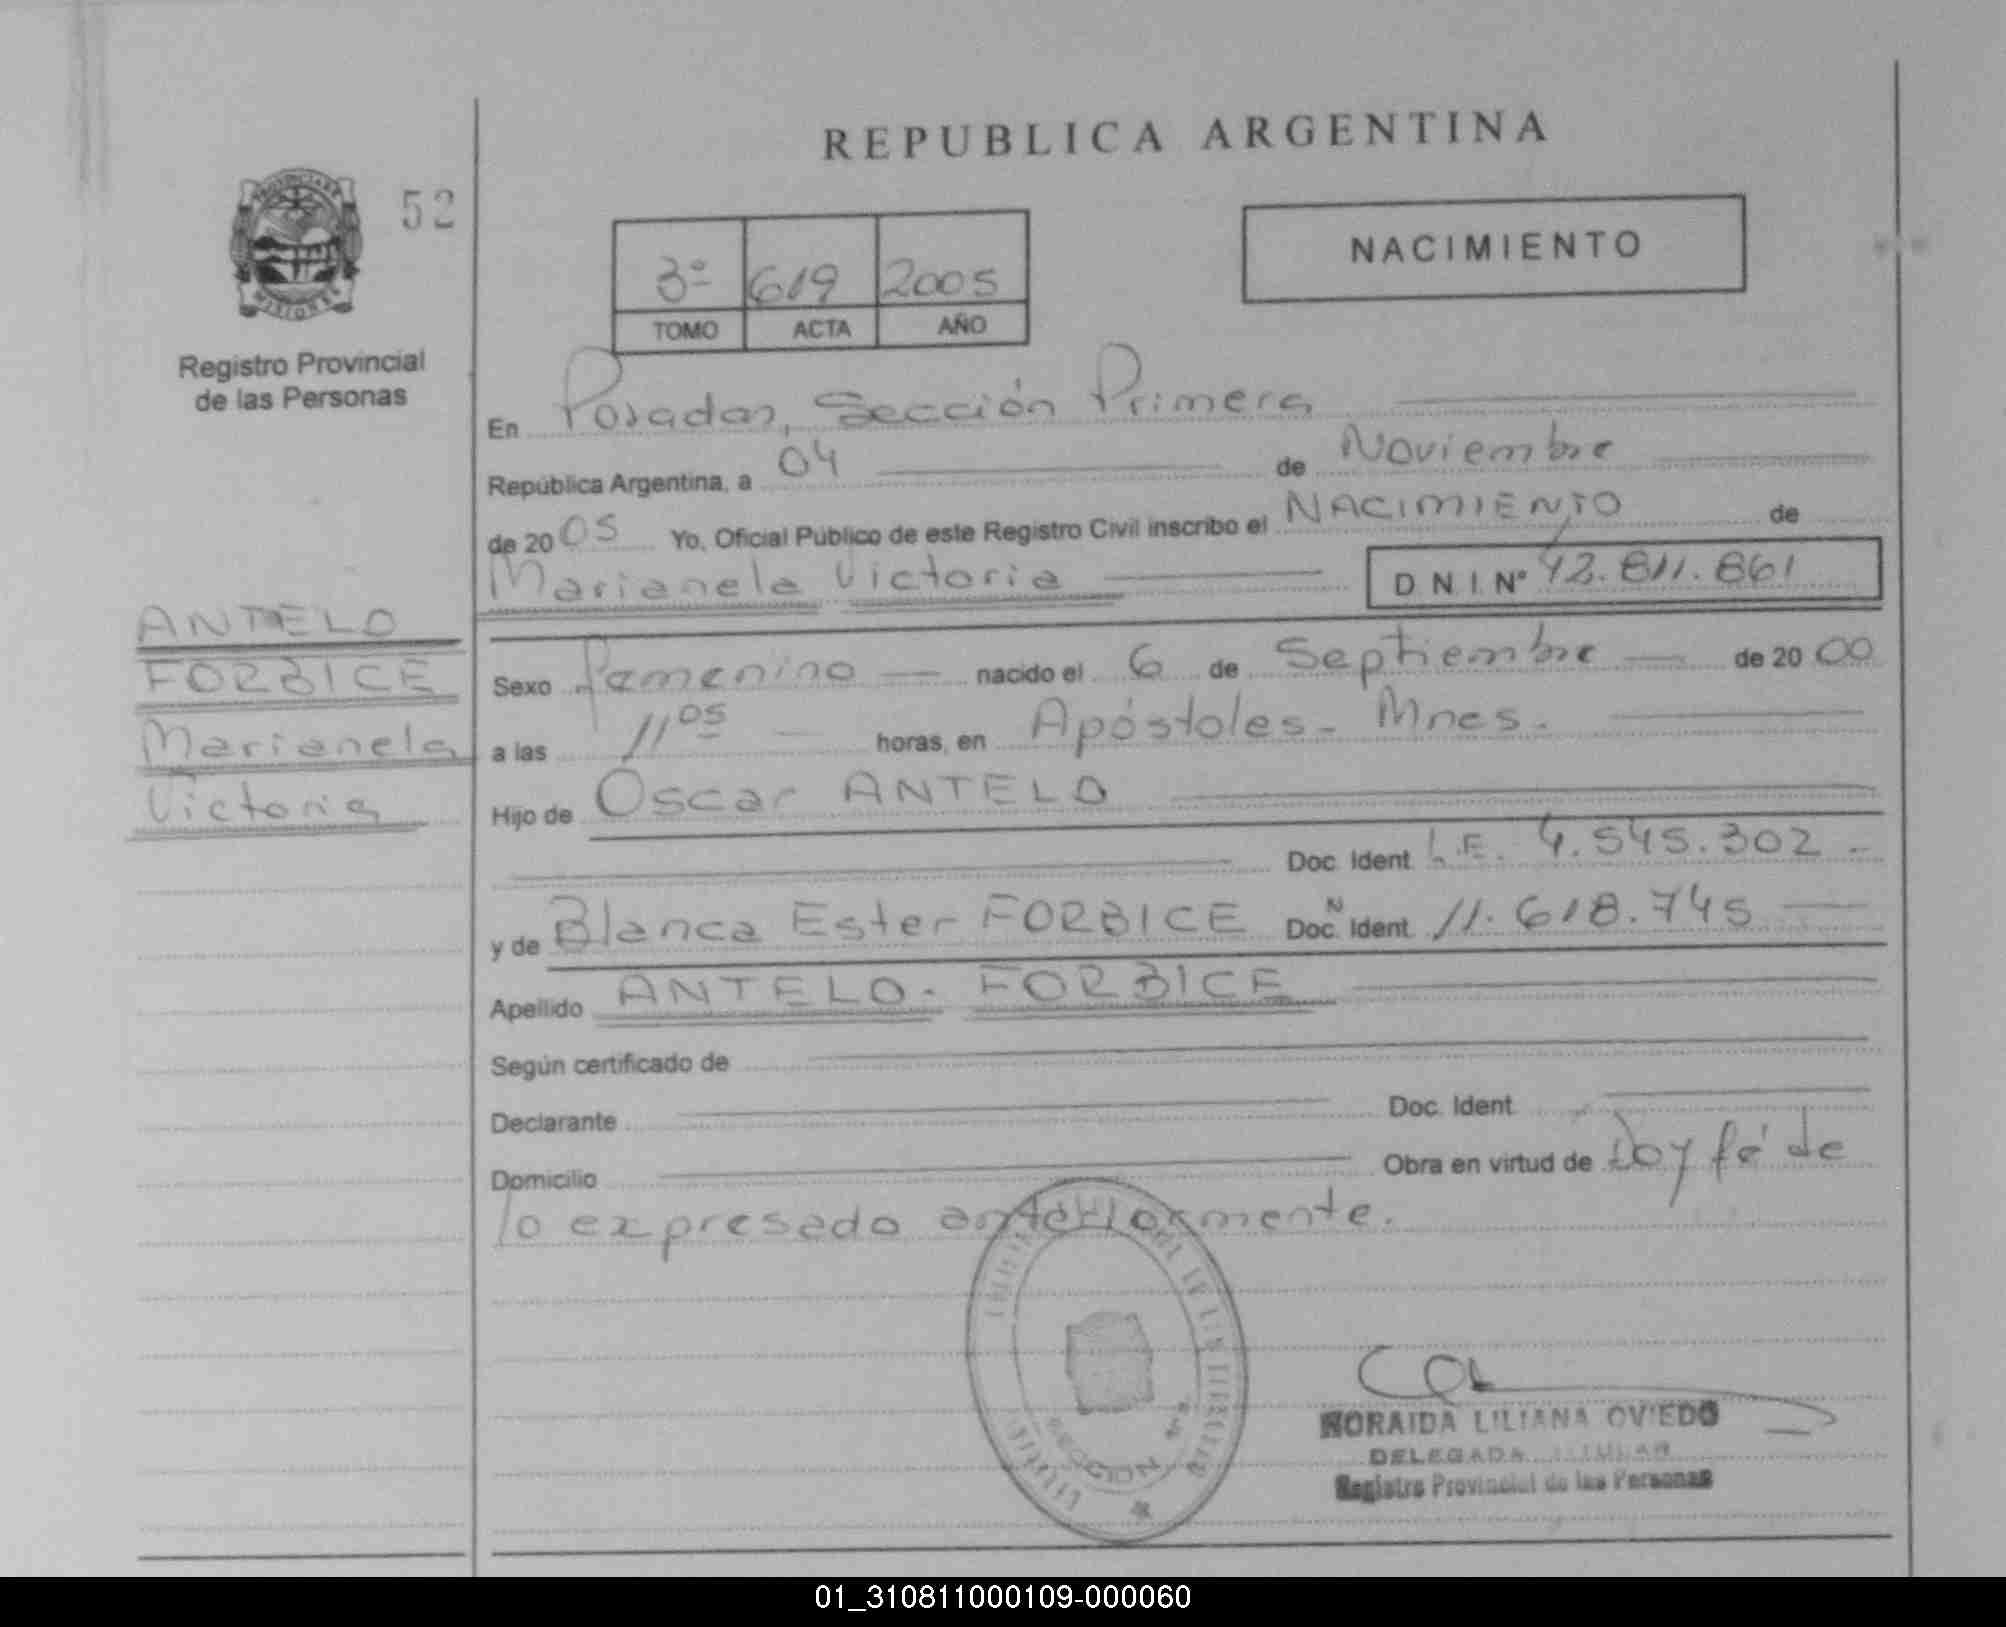 REPUBLICA ARGENTINA
52
NACIMIENTO
3º 619 2005
TOMO ACTA AÑO
MISIONES
Registro Provincial
de las Personas
En Posadas, Sección Primera
República Argentina, a 04 de Noviembre
de 2005 Yo, Oficial Público de este Registro Civil inscribo el NACIMIENTO de
Marianela Victoria D.N.I. Nº 42.811.861
ANTELO
FORBICE
Marianela
Victoria
Sexo Femenino nacido el 6 de Septiembre de 2000
a las 11 05 horas, en Apóstoles - Mnes.
Hijo de Oscar ANTELO
Doc. Ident. L.E. 4.545.302 -
y de Blanca Ester FORBICE Doc. N Ident. 11.618.745
Apellido ANTELO - FORBICE
Según certificado de
Declarante Doc. Ident.
Domicilio Obra en virtud de Doy fé de
lo expresado anteriormente.
SECCION 1ra.
NORAIDA LILIANA OVIEDO
DELEGADA TITULAR
Registro Provincial de las Personas
01_310811000109-000060